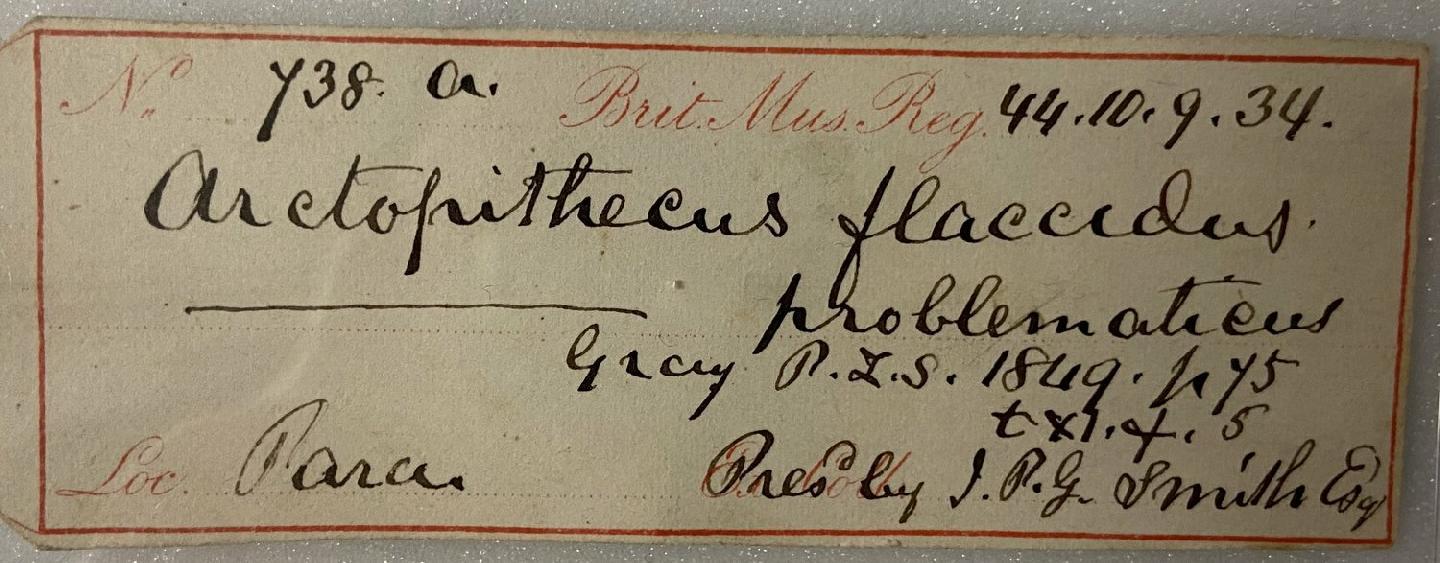 No. 738. a. Brit. Mus. Reg. 44.10.9.34.
Arctopithecus flaccidus.
problematicus
Gray P.Z.S. 1849. p 75
t XI. f. 5
Loc. Para. Presd by J. P. G. Smith Esq